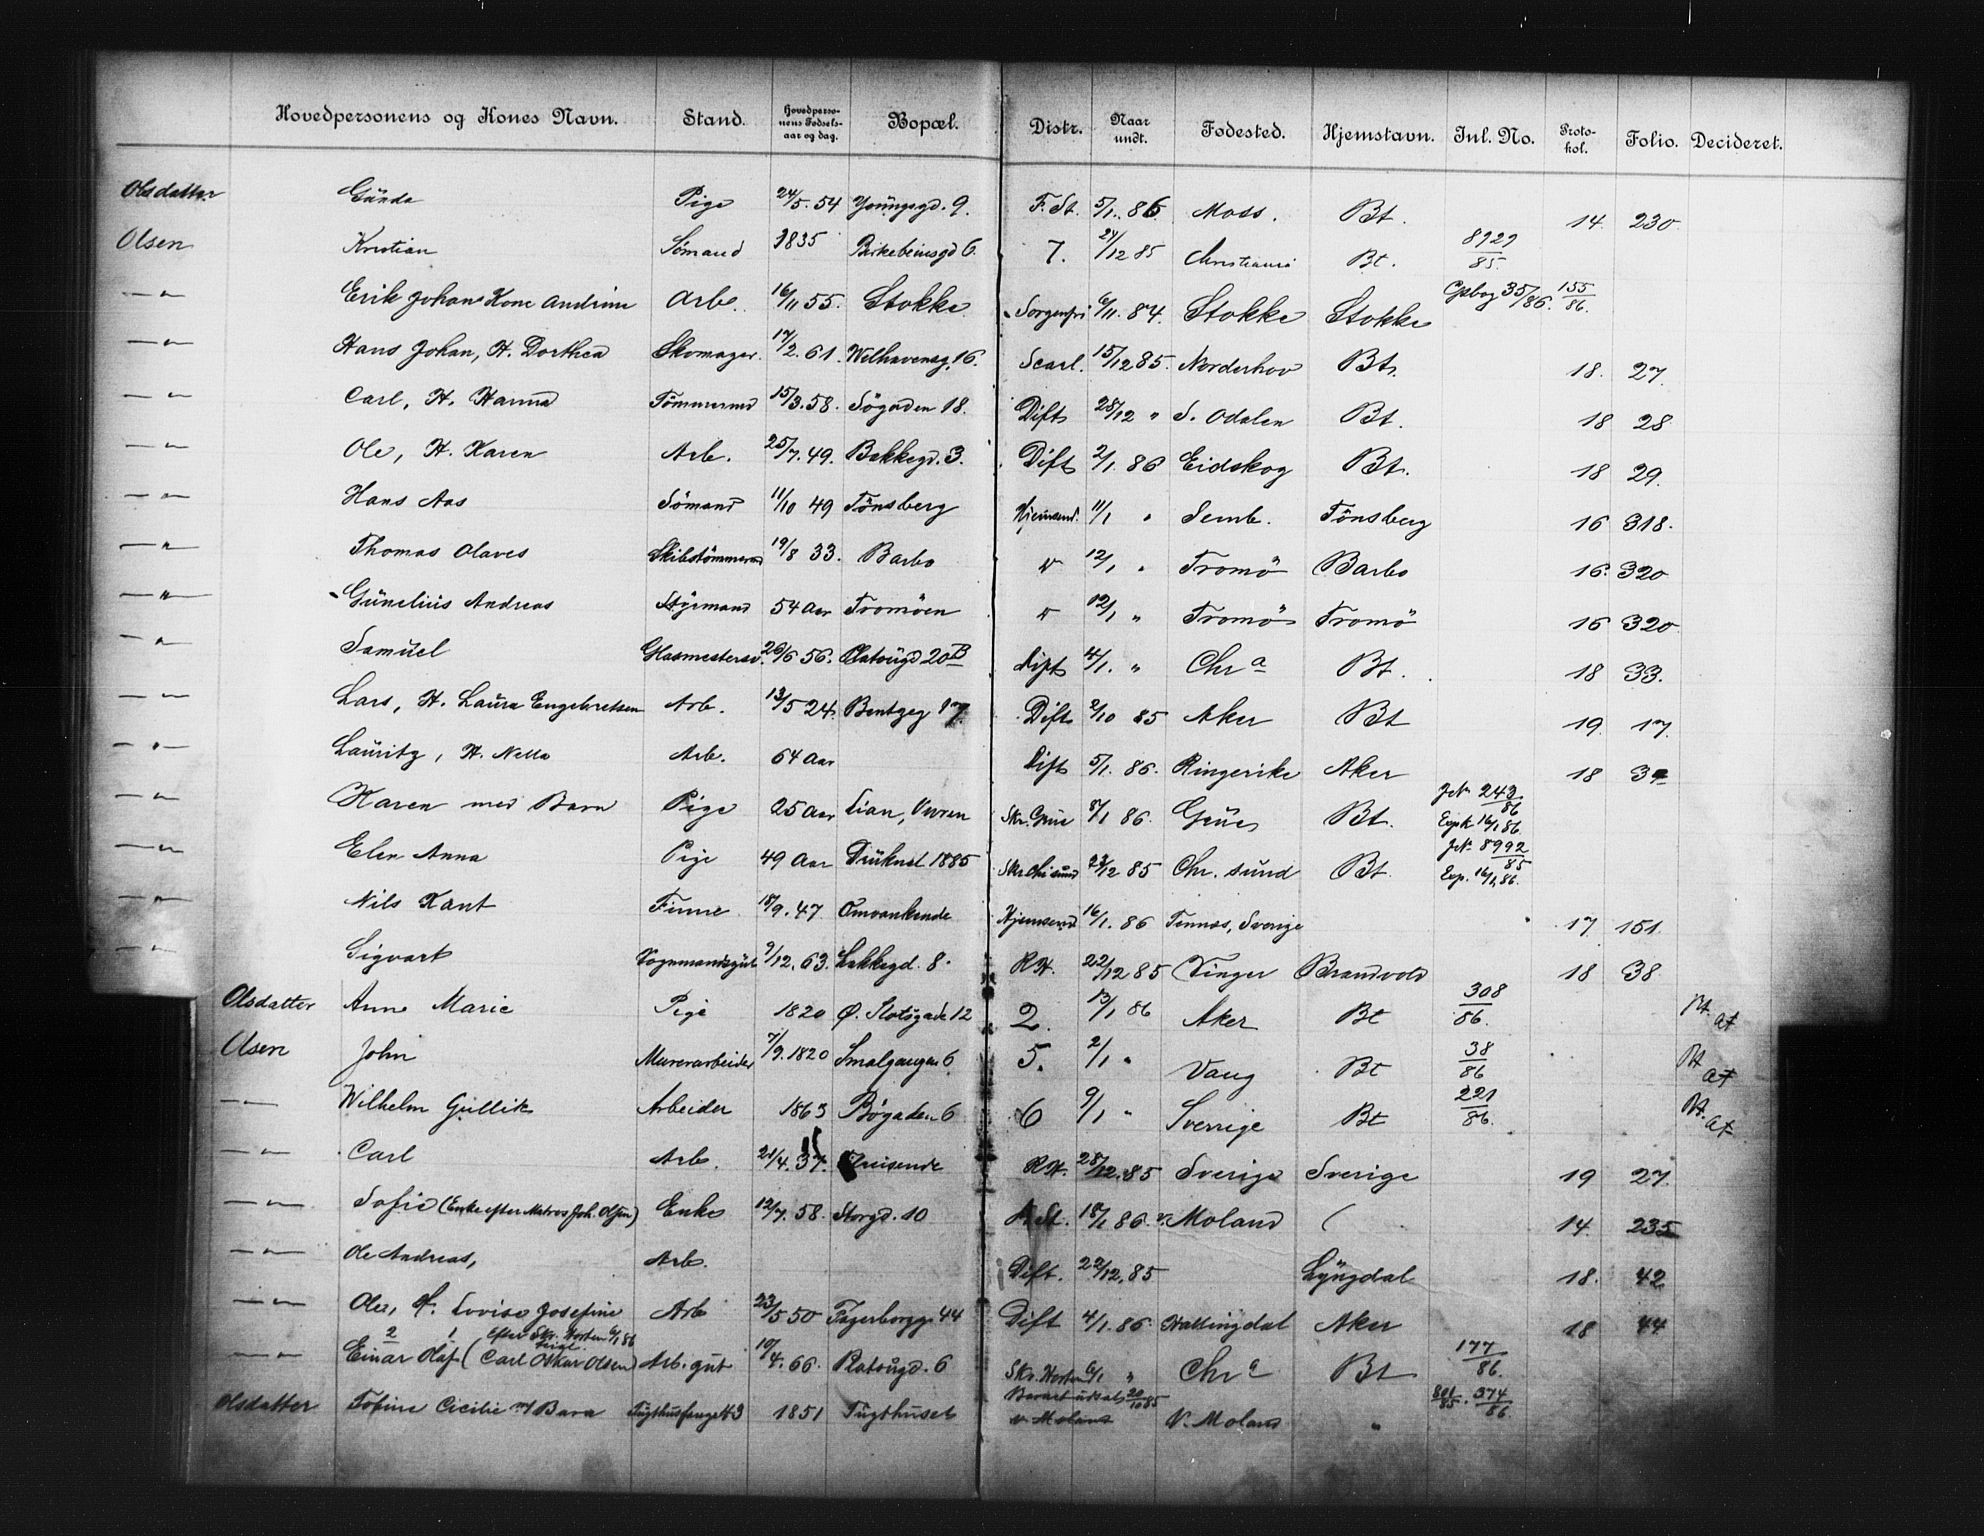 Hovedpersonens og Kones Navn. Stand. Hovedpersonens Fødselsaar og dag. Bopæl. Distr. Naar undt. Fødested. Hjemstavn. Jnl. No. Protokol. Folio. Decideret.
Olsdatter Gunda Pige 24/5. 54 Youngsgd. 9. F. St. 5/1. 86 Moss. Bt. 14. 230
Olsen Kristian Sømand 1835 Birkebeinsgd 6. 7. 12 85 Christiania Bt. 8929/85.
—"— Erik Johan Kone Andrine Arb. 16/11 55. Stokke Sorgenfri 6/11. 84. Stokke Stokke 35/86. 155/86.
—"— Hans Johan, H. Dorthea Skomager. 17/2. 61. Welhavensg. 16. Scarl. 15/12 85. Norderhov Bt. 18. 27.
—"— Carl, H. Hanna Tømmermd 15/3. 58. Søgaden 18. Dift 28/12 " S. Odalen Bt. 18 28
—"— Ole, H. Karen Arb. 25/7. 49. Bakkegd. 3. Dift 2/1. 86 Eidskog Bt. 18 29.
—"— Hans Aas Sømand 11/10 49 Tönsberg Hjemsend. 11/1 " Semb. Tönsberg 16 318.
—"— Thomas Olaves Skibstømmermd 19/8 33. Barbo " 12/1 " Tromö Barbo 16. 320
—"— Gunelius Andreas Styrmand 54 Aar Tromöen " 12/1 " Tromö Tromö 16 320
—"— Samuel Glasmestersv. 26/6 56. Platougd 20B Dift 4/1. " Chra Bt. 18 33.
—"— Lars, H. Laura Engebretsen Arb. 13/5 24. Bentzeg 17 Dift 2/10 85 Aker Bt 19. 17.
—"— Lauritz, H. Nella Arb. 64 Aar Dift 5/1. 86. Ringerike Aker 18 34
—"— Karen med Barn Pige 25 Aar Lian, Vuren Skr. Grue 8/1 86. Grue Bt. JN 243/86 Exp. 16/1 86.
—"— Elen Anna Pige 49 Aar 1885 Skr. Chr.sund 12 85 Chr. sund Bt. JN 8992/85 Exp. 16/1 86.
—"— Nils Kant Finne 18/9. 47 Omvankende Hjemsend 16/1. 86 Tennes, Sverige 17. 151.
—"— Sigvart Vognmandsgut 9/12. 63. Lakkegd. 8. RH. 22/12 85 Vinger Brandvold 18 38
Olsdatter Anne Marie Pige 1820 Ø. Slotsgade 12 2. 13/1 86 Aker Bt 308/86. Bt. at
Olsen John Murerarbeider 7/9. 1820 Smalgangen 6 5. 2/1 " Vang Bt 38/86 Bt at
—"— Wilhelm Gullik Arbeider 1863 Bøgaden 6 6 9/1 " Sverrige Bt 221/86. Bt. at
—"— Carl Arb. 21/4. 37. Tilreisende RH. 28/12. 85 Sverige Sverige 19 27.
—"— Sofie (Enke efter Matros Joh. Olsen) Enke 12/7. 58. Storgd. 10 A. St. 18/1 86. v. Moland ( 14. 235
—"— Ole Andreas, Arb. Dift. 22/12. 85 Lyngdal 18. 42
—"— Ole, H. Lovise Josefine Arb 23/5 50 Fagerborgg. 44 Dift 4/1. 86. Hallingdal Aker 18 44
2 1 Efter Skr. Horten 6/1 86
—"— Einar Olaf (Carl Oskar Olsen) Arb. gut 19/4. 66. Platougd. 6 Skr. Horten 6/1 " Chra Bt 177/86.
Olsdatter Tobine Cicilie m/ Barn Tugthusfange 43 1851 Tugthuset 20/10 85 v. Moland V. Moland " 801/85. 374/86.